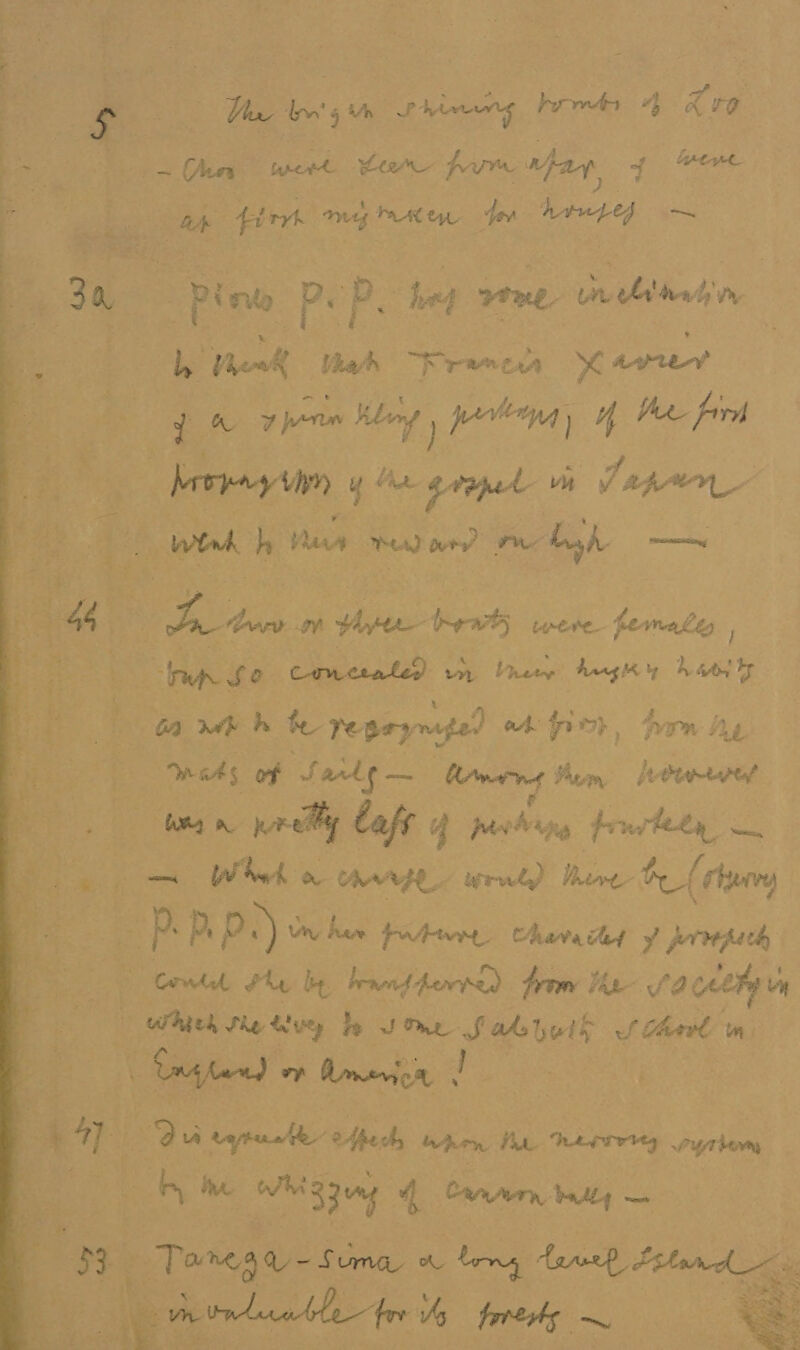 5 The bright shining tombs of Loo
- Choo were seen from afar, & were
at first mistaken for houses —
30 Pinto P. P. has some inclination
to think that Francis Xavier
& a Spanish King, perhaps, of the first
propagation of the gospel in Japan
went to their reward on high —
44 In two or three boats were females,
but so concealed in their husky habits
as not to be recognized at first, from the
mats or sails — Among them however
was a pretty lass of perhaps fourteen —
— What a change would there be (
P. P. P.) in her future character & prospects
could she be transferred from the society in
which she lives to some Sabbath School in
England or America!
47 Disagreeable effects upon the nervous system
by the whizzing of cannon balls —
53 Tanega-Sima a long level Island
invaluable for its forests —